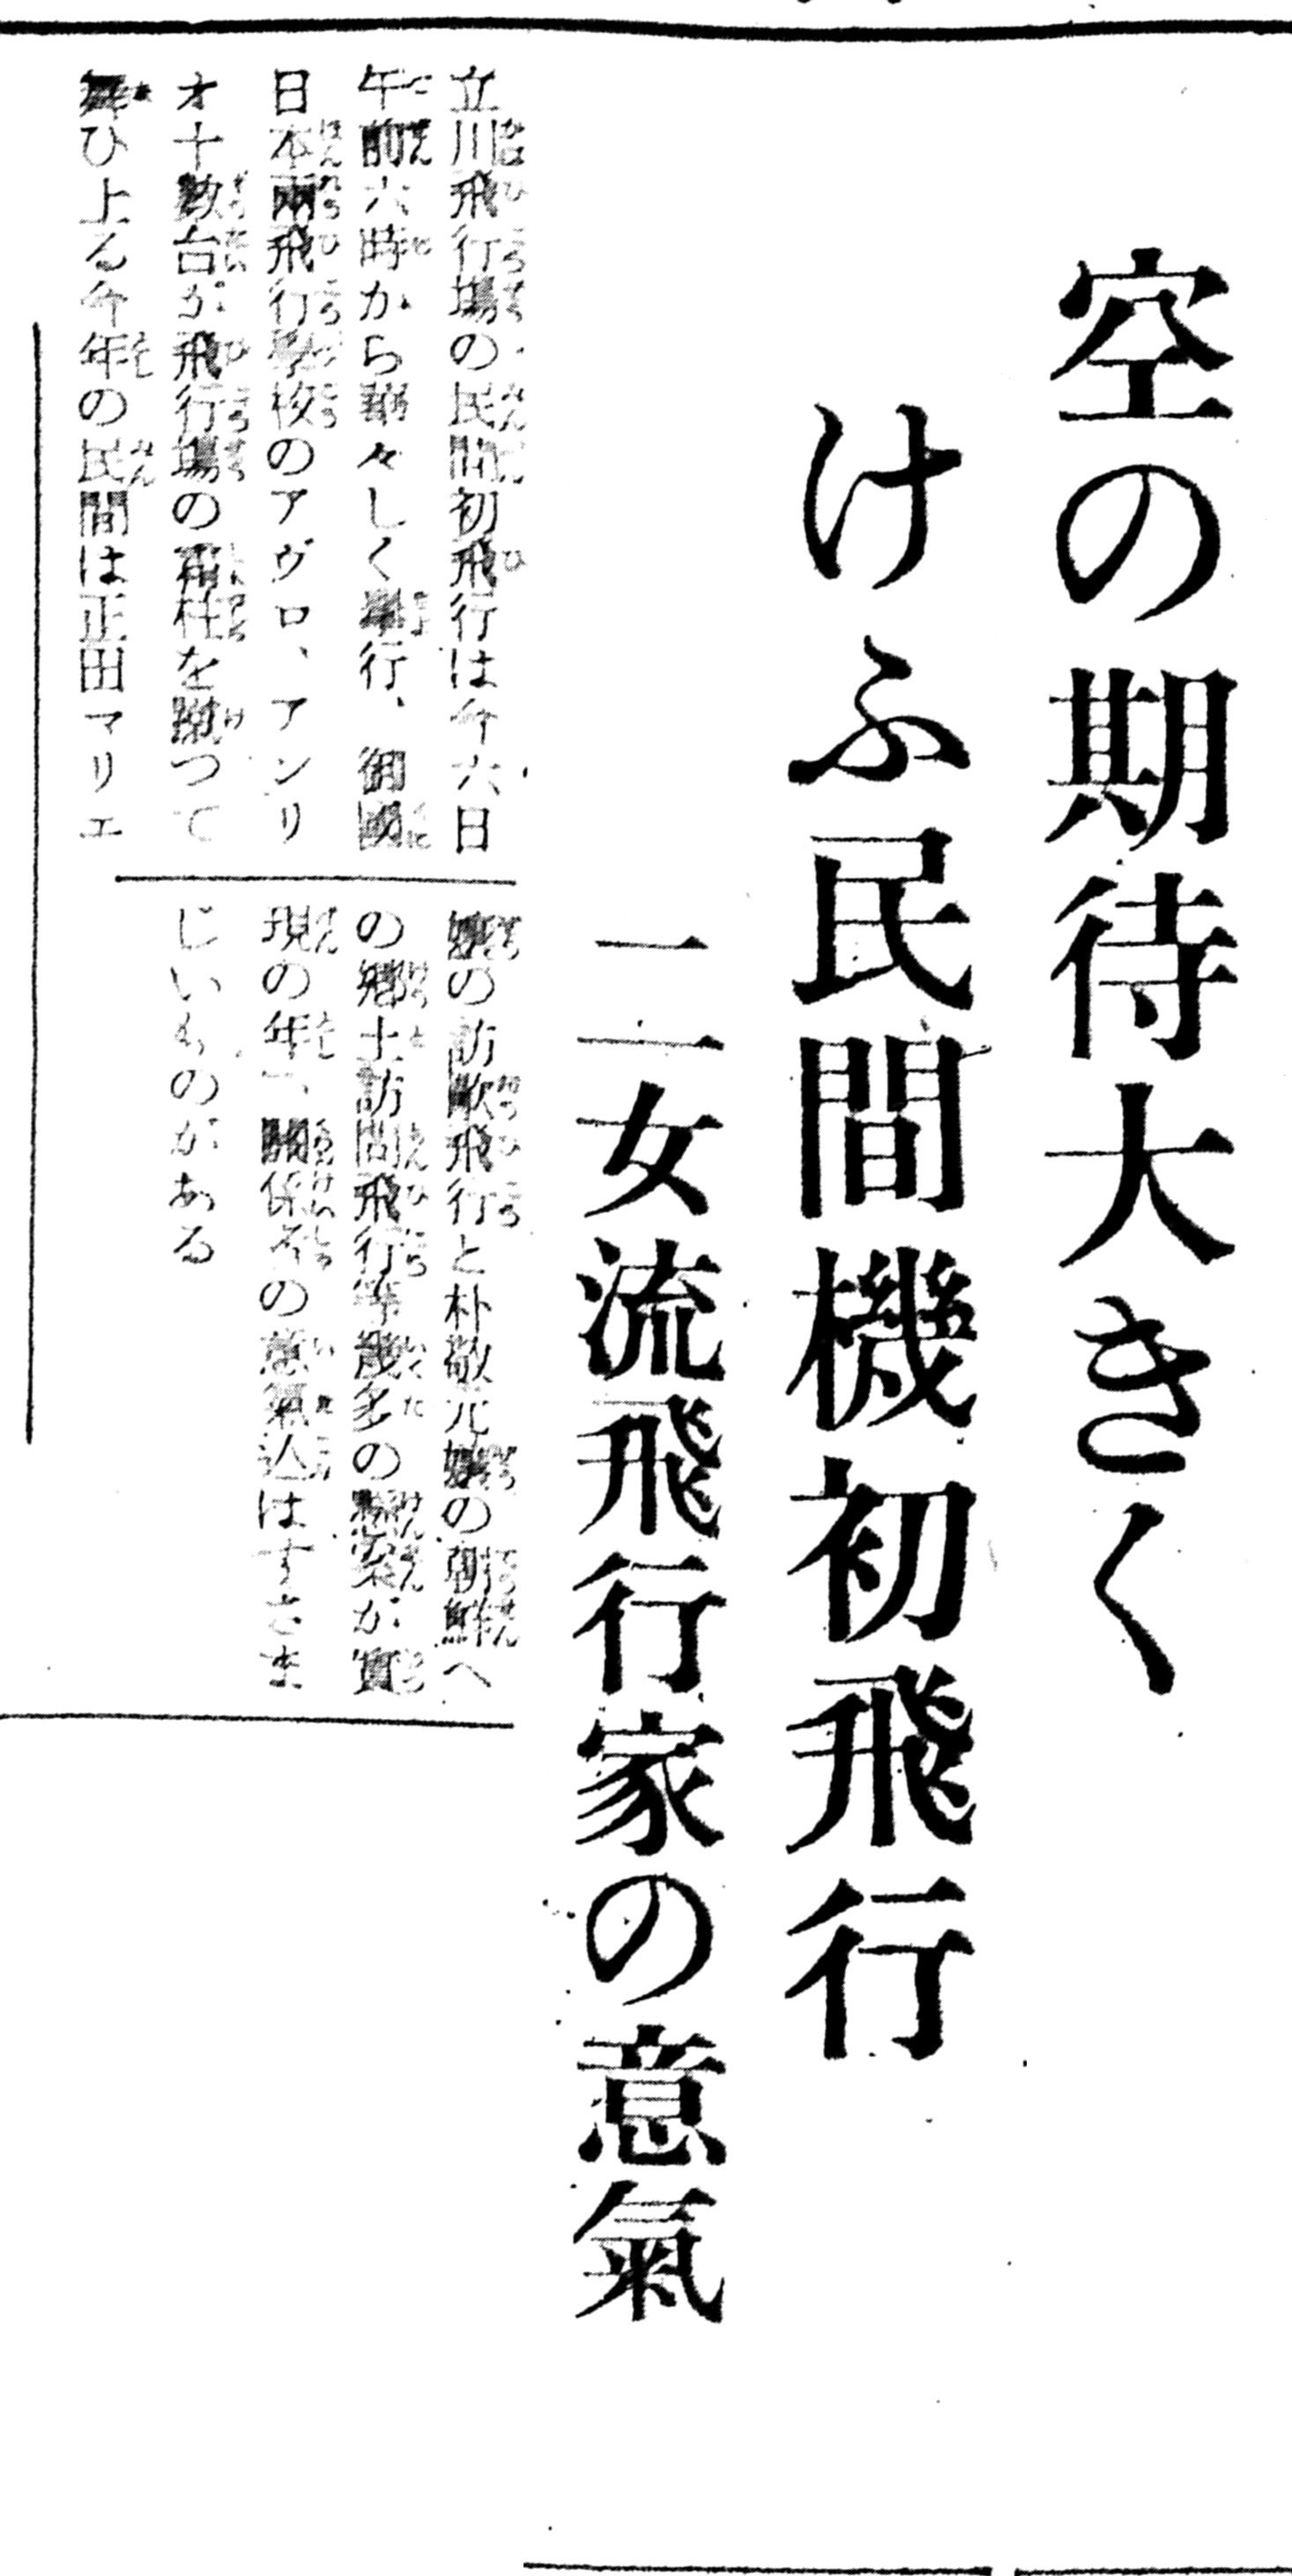 空の期待大きく
けふ民間機初飛行
二女流飛行家の意氣
立川飛行場の民間初飛行は今六日
午前六時から華々しく擧行、御國
日本兩飛行學校のアヴロ、アンリ
オ十數台が飛行場の霜柱を蹴つて
舞ひ上る今年の民間は正田マリエ
孃の訪歐飛行と朴敬元孃の朝鮮へ
の郷土訪問飛行等幾多の懸案が實
現の年、關係者の意氣込はすさま
じいものがある